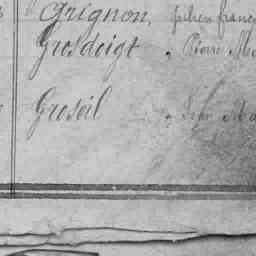 Grignon, Julien Franç
Grosdoigt " Pierre M
Groseil " Jean Ma